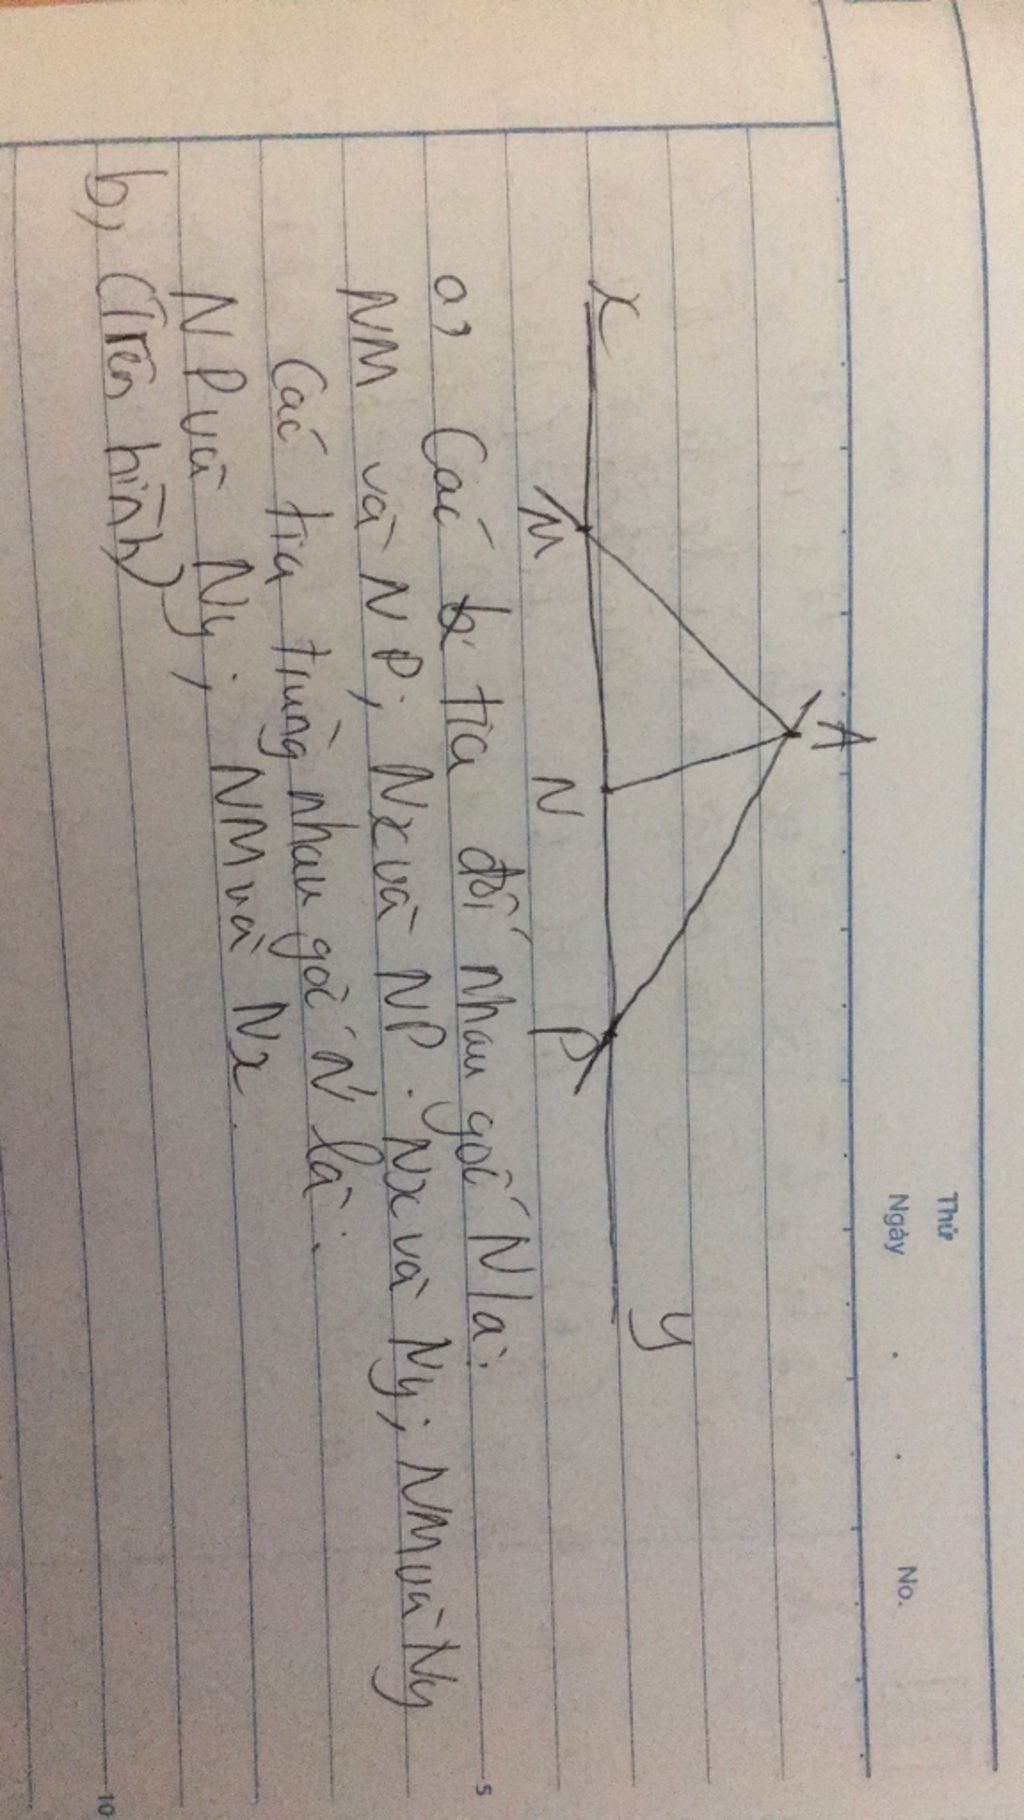 Thứ
Ngày
No.
A
x
y
M
N
P
a, Các tia đối nhau gốc N là:
NM và NP; Nx và NP. Nx và Ny; NM và Ny
Các tia trùng nhau gốc N là:
NP và Ny; NM và Nx.
b, (Trên hình)
5
10